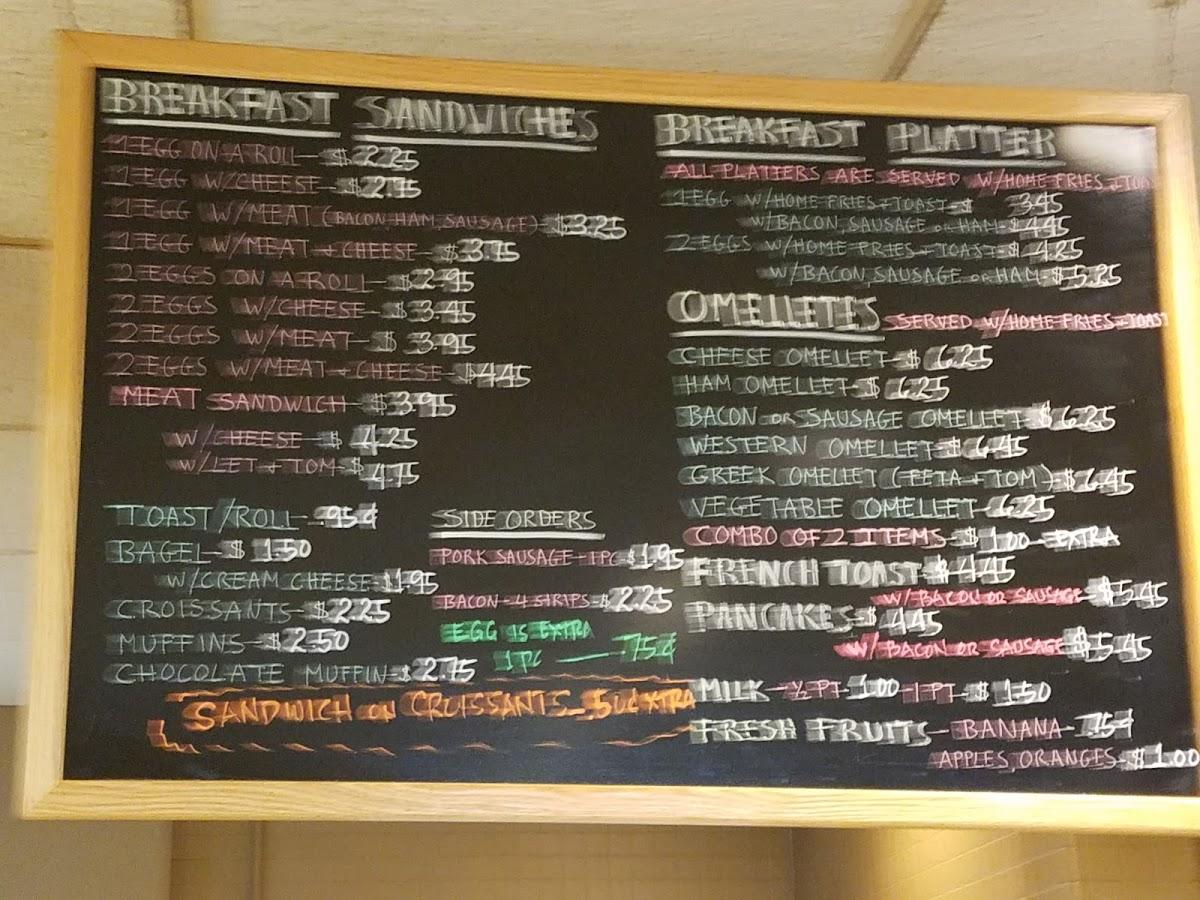 BREAKFAST SANDWICHES
1 EGG ON A ROLL - $2.25
1 EGG W/CHEESE - $2.75
1 EGG W/MEAT (BACON, HAM, SAUSAGE) $3.25
1 EGG W/MEAT + CHEESE - $3.75
2 EGGS ON A ROLL - $2.95
2 EGGS W/CHEESE - $3.45
2 EGGS W/MEAT - $3.95
2 EGGS W/MEAT + CHEESE - $4.45
MEAT SANDWICH - $3.95
W/CHEESE - $4.25
W/LET + TOM - $4.75
TOAST/ROLL - .95¢
BAGEL - $1.50
W/CREAM CHEESE - $1.95
CROISSANTS - $2.25
MUFFINS - $2.50
CHOCOLATE MUFFIN - $2.75
SIDE ORDERS
PORK SAUSAGE - 1 PC $1.95
BACON - 4 STRIPS - $2.25
EGG IS EXTRA
1 PC — 75¢
SANDWICH on CROISSANTS 50¢ XTRA
BREAKFAST PLATTER
ALL PLATTERS ARE SERVED W/HOME FRIES + TOA
1 EGG W/HOME FRIES + TOAST - $3.45
W/BACON, SAUSAGE OR HAM - $4.45
2 EGGS W/HOME FRIES + TOAST - $4.25
W/BACON, SAUSAGE OR HAM - $5.25
OMELLETES SERVED W/HOME FRIES + TOAST
CHEESE OMELLET - $6.25
HAM OMELLET - $6.25
BACON OR SAUSAGE OMELLET - $6.25
WESTERN OMELLET - $6.45
GREEK OMELLET (FETA + TOM) - $6.45
VEGETABLE OMELLET - 6.25
COMBO OF 2 ITEMS - $1.00 - EXTRA
FRENCH TOAST - $4.45
W/BACON OR SAUSAGE - $5.45
PANCAKES - $4.45
W/BACON OR SAUSAGE $5.45
MILK - ½ PT 1.00 - 1 PT - $1.50
FRESH FRUITS - BANANA - 75¢
APPLES, ORANGES - $1.00